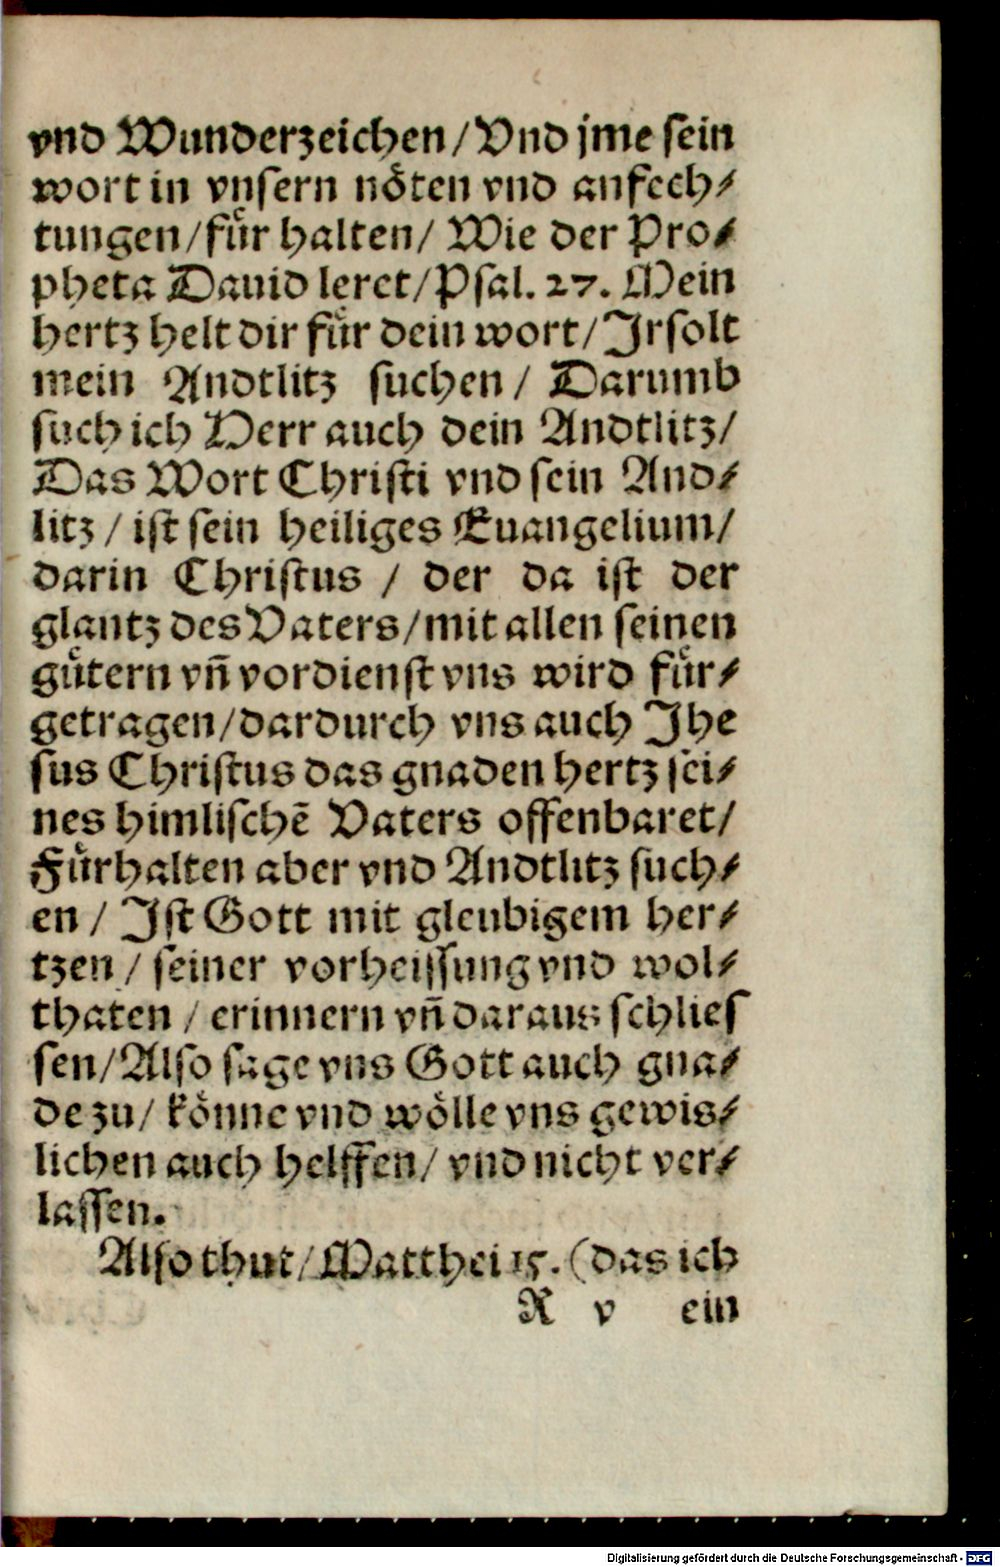 vnd Wunderzeichen / Vnd jme sein
wort in vnsern nöten vnd anfech⸗
tungen / für halten / Wie der Pro⸗
pheta Dauid leret / Psal. 27. Mein
hertz helt dir für dein wort / Jr solt
mein Andtlitz suchen / Darumb
such ich Herr auch dein Andtlitz /
Das Wort Christi vnd sein And⸗
litz / ist sein heiliges Euangelium /
darin Christus / der da ist der
glantz des Vaters / mit allen seinen
gütern vñ vordienst vns wird für⸗
getragen / dardurch vns auch Jhe
sus Christus das gnaden hertz sei⸗
nes himlischẽ Vaters offenbaret /
Fürhalten aber vnd Andtlitz such⸗
en / Jst Gott mit gleubigem her⸗
tzen / seiner vorheissung vnd wol⸗
thaten / erinnern vñ daraus schlies
sen / Also sage vns Gott auch gna⸗
de zu / könne vnd wölle vns gewis⸗
lichen auch helffen / vnd nicht ver⸗
lassen.
Also thut / Matthei 15. (das ich
R v ein
Digitalisierung gefördert durch die Deutsche Forschungsgemeinschaft - DFG